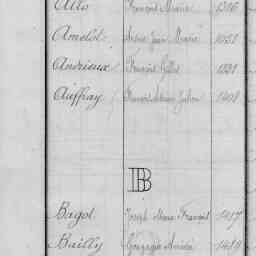 Allo François Marie 1386
Amelot Marie 1051
Andrieux François Gilles 1321
Auffray François Julien 1401
B
Bagot Joseph Marie François 1417
Bailly